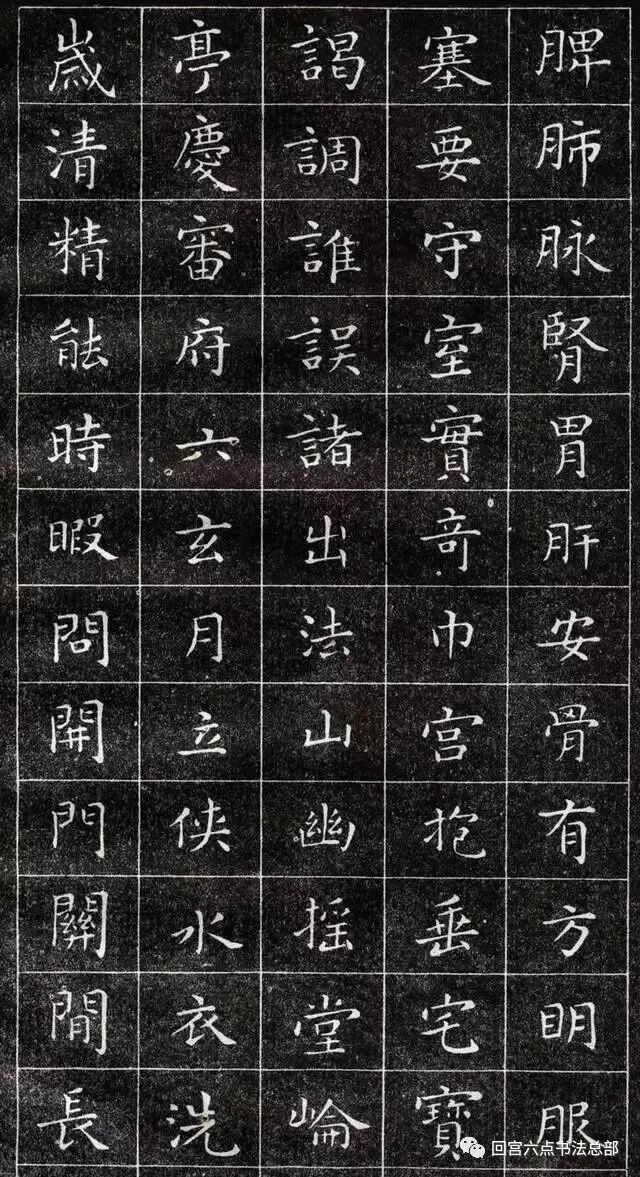 脾肺脉腎胃肝安骨有方眀服
塞要守室實竒巾宫抱垂宅寶
謁調誰誤諸出法山幽摇堂崘
亭慶審府六玄月立侠水衣洗
歲清精能時暇問開門關閒長
回宫六点书法总部